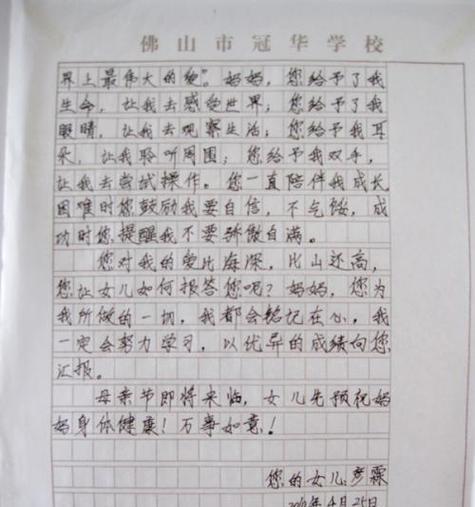 佛山市冠华学校
界上最伟大的爱”。妈妈，您给予了我
生命，让我去感受世界；您给予了我
眼睛，让我去观察生活；您给予我耳
朵，让我聆听周围；您给予我双手，
让我去尝试操作。您一直陪伴我成长，
困难时您鼓励我要自信，不气馁，成
功时您提醒我不要骄傲自满。
您对我的爱比海深，比山还高，
您让女儿如何报答您呢？妈妈，您为
我所做的一切，我都会铭记在心，我
一定会努力学习，以优异的成绩向您
汇报。
母亲节即将来临，女儿先预祝妈
妈身体健康！万事如意！
您的女儿彦霖
年4月25日